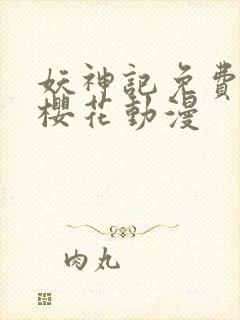 妖神記免費
櫻花動漫
肉丸